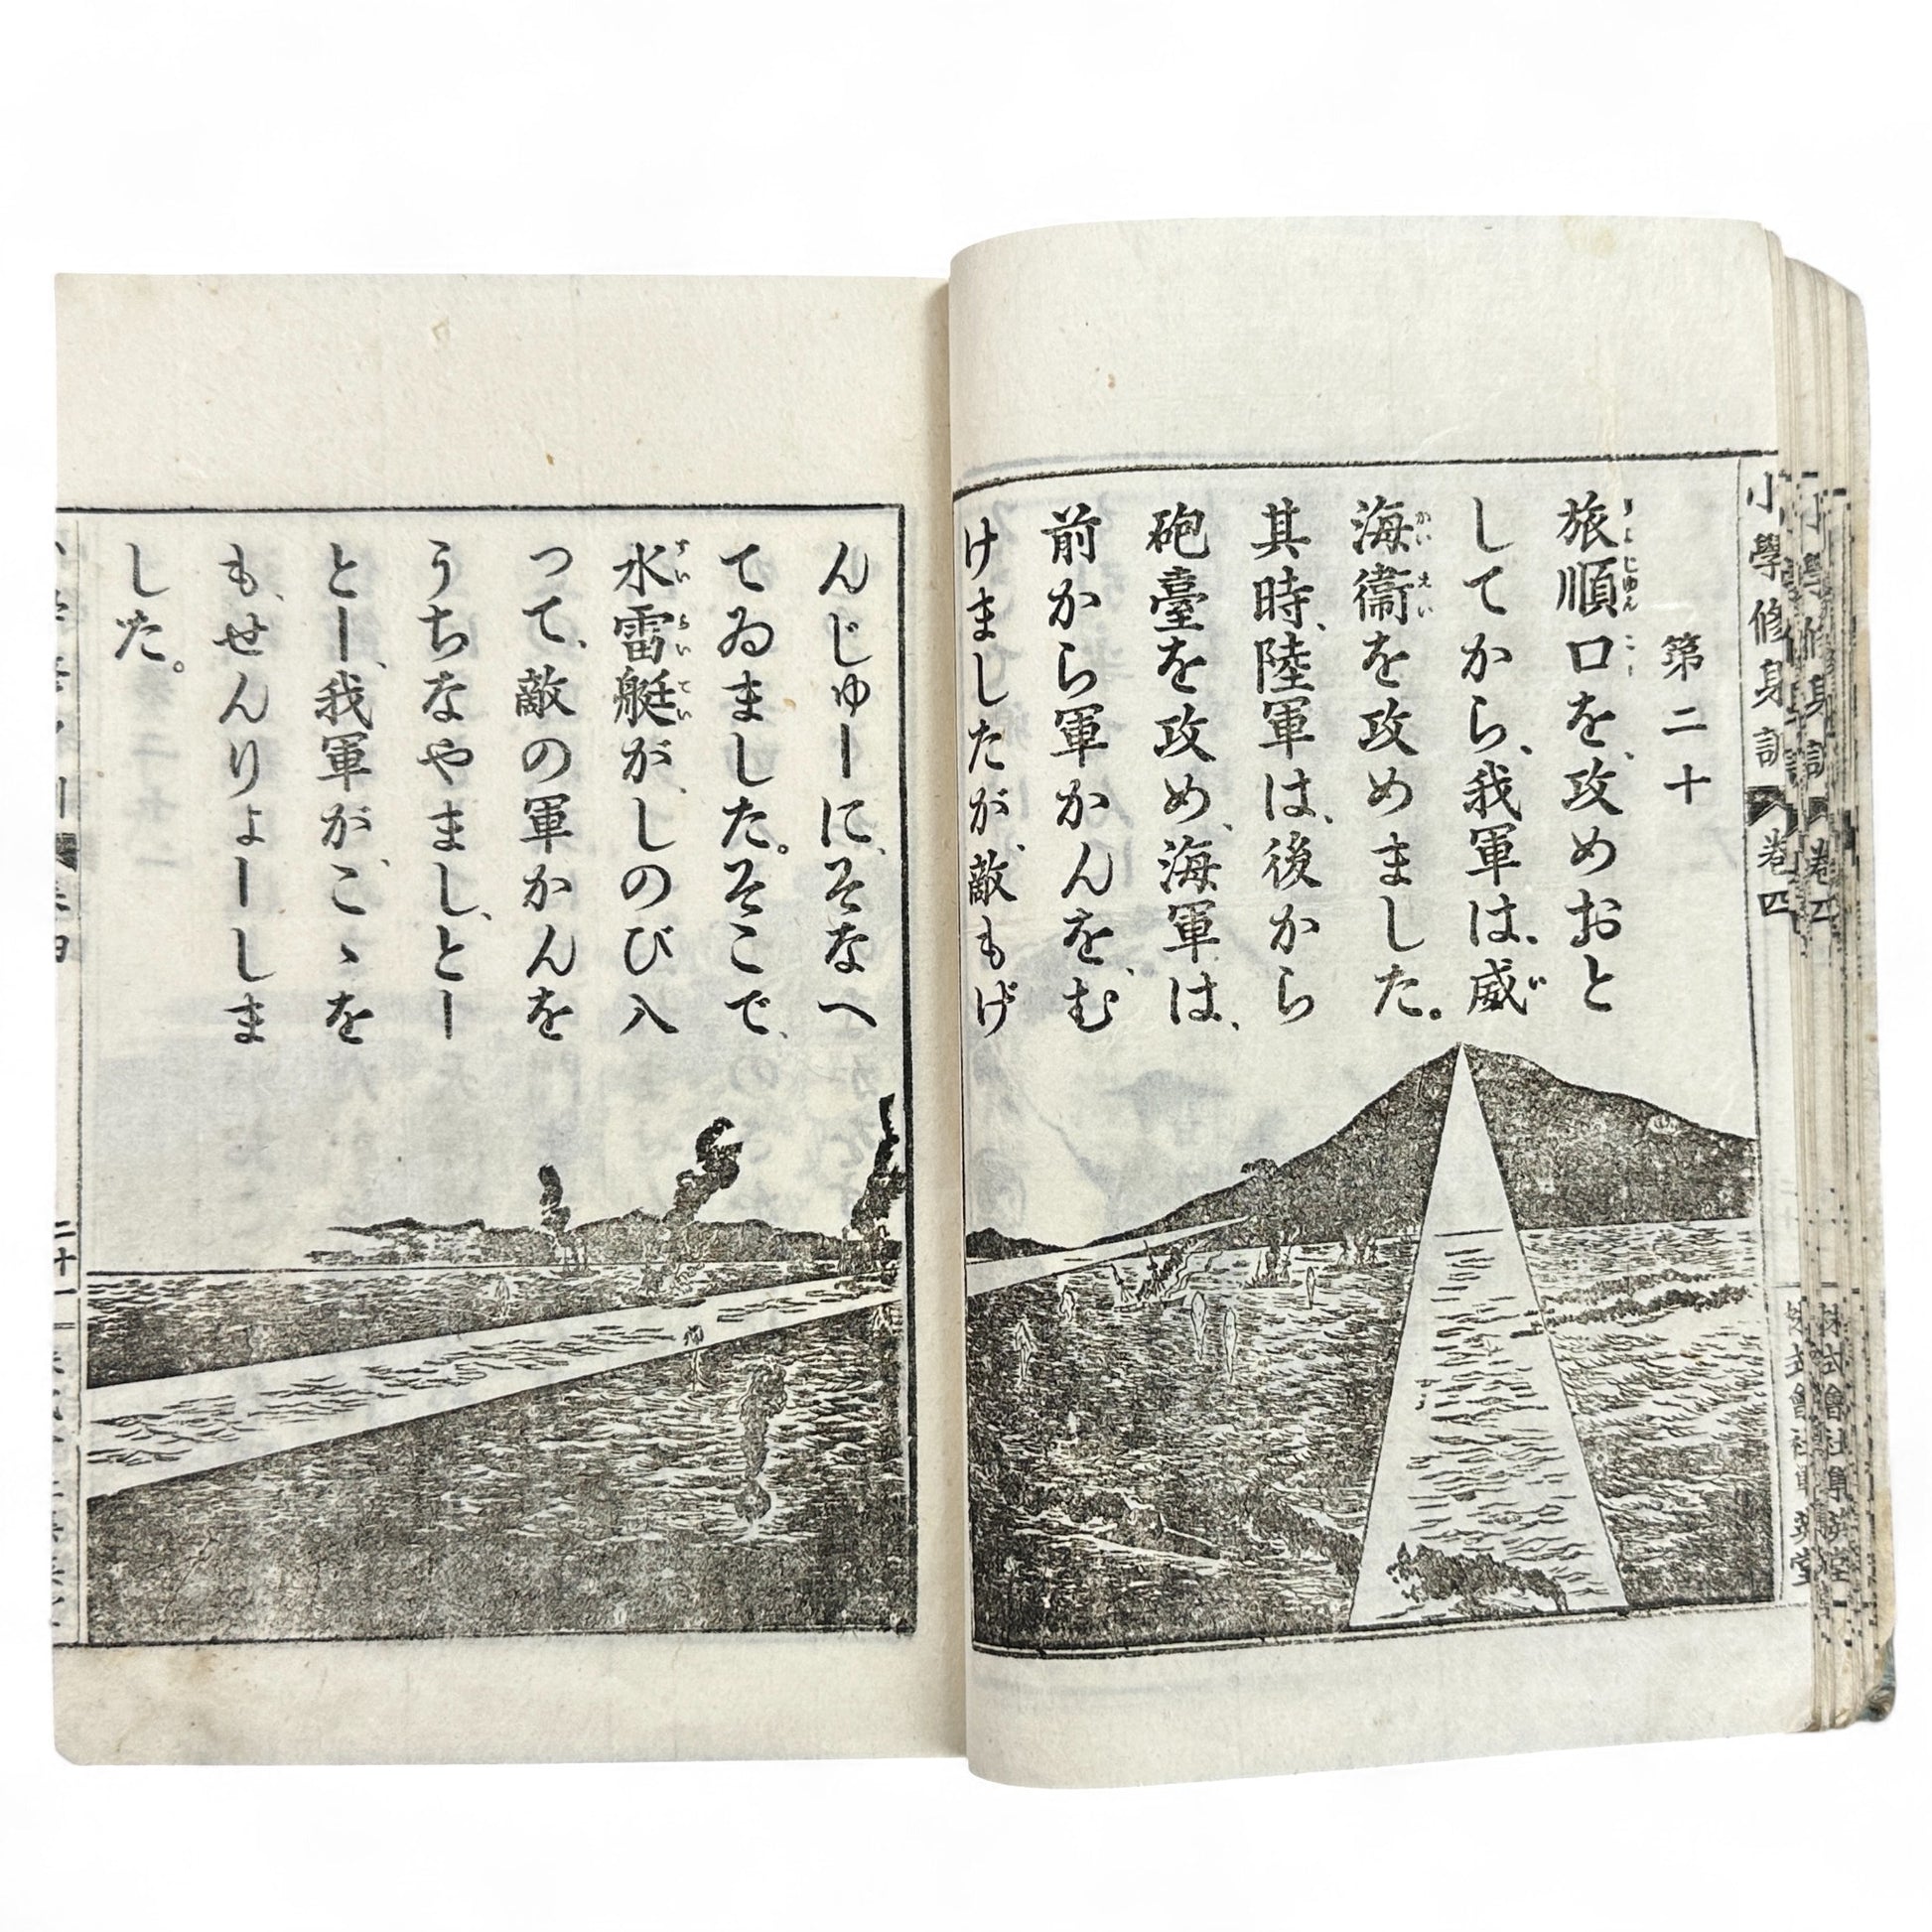 小學修身訓 卷四
第二十
旅順口を、攻めおと
してから、我軍は、威
海衞を攻めました。
其時、陸軍は、後から
砲臺を攻め、海軍は、
前から軍かんを、む
けましたが、敵もげ
んじゅーに、そなへ
てゐました。そこで、
水雷艇が、しのび入
って、敵の軍かんを
うちなやまし、とー
とー、我軍が、こゝを
も、せんりょーしま
した。
二十一